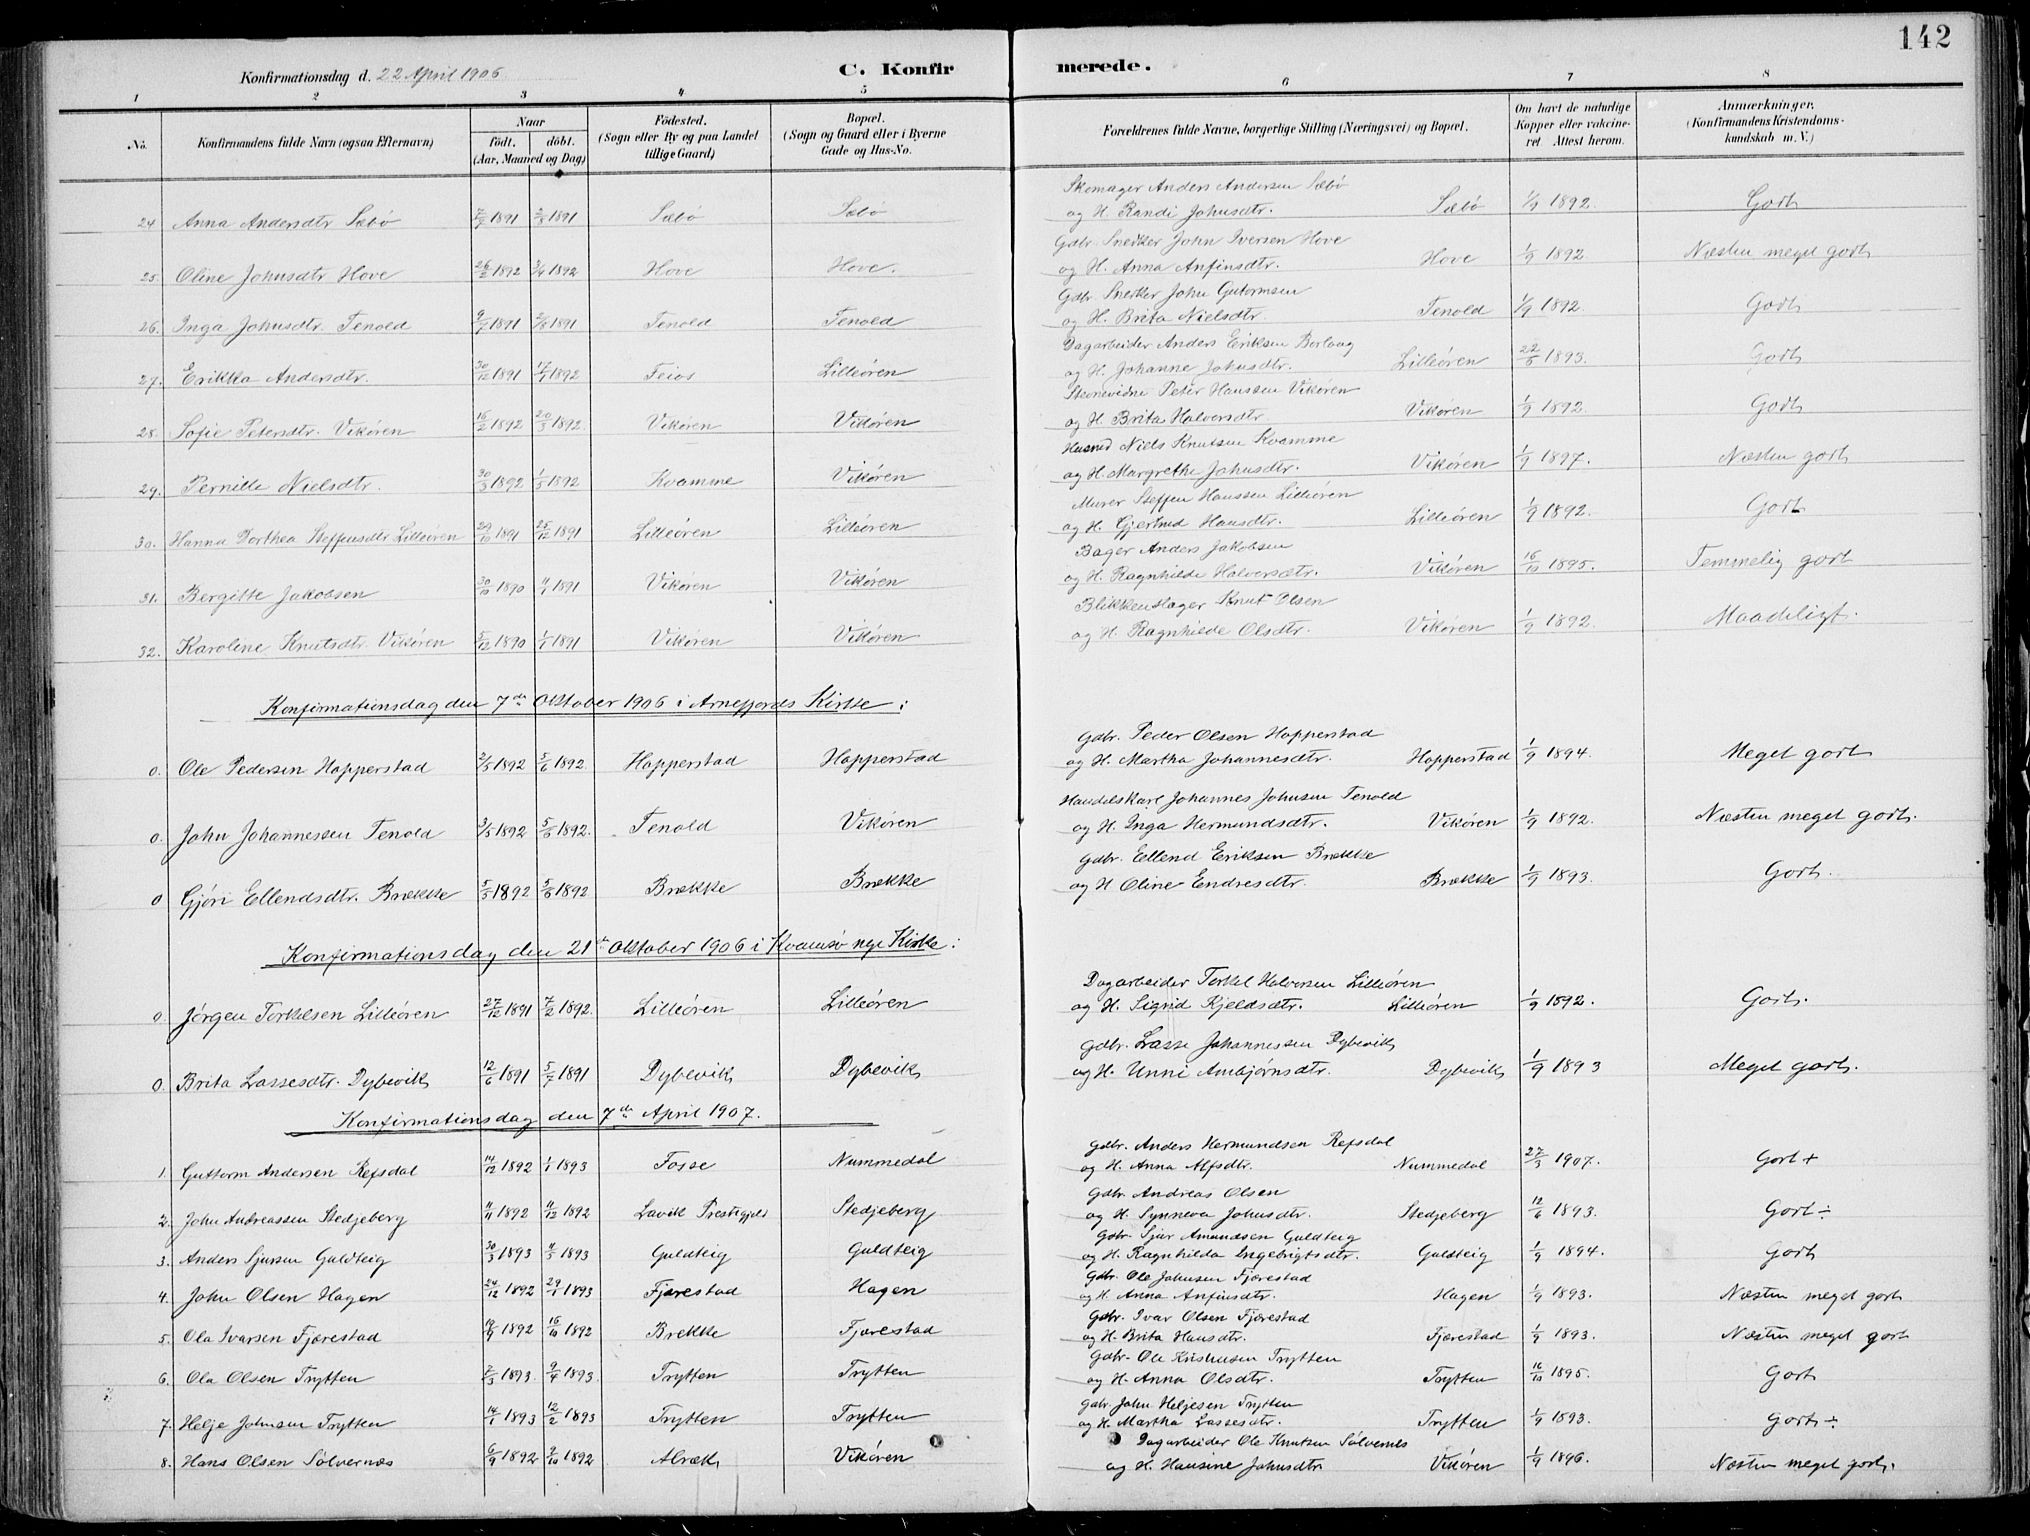 142
Konfirmationsdag d. 22 April 1906 C. Konfirmerede.
1 2 3 4 5 6 7 8
No. Konfirmandens fulde Navn (ogsaa Efternavn) Naar født. døbt. (Aar, Maaned og Dag) Fødested. (Sogn eller By og paa Landet tillige Gaard) Bopæl. (Sogn og Gaard eller i Byerne Gade og Hus-No. Forældrenes fulde Navne, borgerlige Stilling (Næringsvei) og Bopæl. Om havt de naturlige Kopper eller vakcineret Attest herom. Anmærkninger. (Konfirmandens Kristendomskundskab m. V.)
Skomager Anders Andersen Sæbø
24 Anna Andersdtr Sæbø 1891 1891 Sæbø Sæbø og H. Randi Johnsdtr. Sæbø 1/9 1892. Godt
Gdbr. Snedker John Iversen Hove
25. Oline Johnsdtr Hove 26/2 1892 3/4 1892 Hove Hove. og H. Anna Anfinsdtr. Hove 1/9 1892 Næsten meget godt
Gdbr. Snedker John Gutormsen
26. Inga Johnsdtr. Tenold 9/7 1891 2/8 1891 Tenold Tenold og H. Brita Nielsdtr. Tenold 1/9 1892. Godt
Dagarbeider Anders Eriksen Borlaug
27. Erikka Andersdtr. 30/12 1891 17/1 1892 Feios Lilleøren og H. Johanne Johnsdtr. Lilleøren 1893. Godt
Peter Hanssen Vikøren
28. Sofie Petersdtr. Vikøren 16/2 1892 20/3 1892. Vikøren Vikøren og H. Brita Halversdtr. Vikøren 1/9 1892. Godt
Husmd Niels Knutsen Kvamme
29. Pernille Nielsdtr. 30/3 1892 1/5 1892 Kvamme Vikøren og H. Margrethe Johnsdtr. Vikøren 1/9 1897. Næsten godt
Murer Steffen Hanssen Lilleøren
30. Hanna Dorthea Steffensdtr Lilleøren 29/10 1891 25/12 1891 Lilleøren Lilleøren og H. Gjertrud Hansdtr. Lilleøren 1/9 1892. Godt
Bager Anders Jakobsen
31. Bergitte Jakobsen 30/10 1890 1891 Vikøren Vikøren og H. Ragnhilde Halversdtr. Vikøren 16/10 1895. Temmelig godt
Blikkenslager Knut Olsen
32. Karoline Knutsdtr. Vikøren 5/12 1890 1/1 1891 Vikøren Vikøren og H. Ragnhilde Olsdtr. Vikøren 1/9 1892. Maadeligt.
Konfirmationsdag den 7de Oktober 1906 i Arnefjords Kirke:
Gdbr. Peder Olsen Hopperstad
0. Ole Pedersen Hopperstad 2/5 1892 5/6 1892. Hopperstad Hopperstad og H. Martha Johannesdtr. Hopperstad 1/9 1894. Meget godt
Handelskarl Johannes Johnsen Tenold
0. John Johannessen Tenold 3/5 1892 5/6 1892. Tenold Vikøren og H. Inga Hermundsdtr. Vikøren 1/9 1892. Næsten meget godt.
Gdbr. Ellend Eriksen Brække
0 Gjøri Ellendsdtr. Brække 5/5 1892 5/6 1892 Brække Brække og H Oline Endresdtr. Brække 1/9 1893. Godt.
Konfirmationsdag den 21de Oktober 1906 i Kvamsø nye Kirke:
Dagarbeider Torkel Halversen Lilleøren
0. Jørgen Torkelsen Lilleøren 27/12 1891 7/2 1892. Lilleøren Lilleøren og H. Sigrid Kjeldsdtr. Lilleøren 1/9 1892. Godt.
Gdbr. Lasse Johannessen Dybevik
0. Brita Lassesdtr. Dybevik 12/6 1891 5/7 1891 Dybevik Dybevik og H. Unni Ambjørnsdtr. Dybevik 1/9 1893 Meget godt.
Konfirmationsdag den 7de April 1907.
Gdbr. Anders Hermundsen Refsdal
1. Guttorm Andersen Refsdal 14/12 1892 1/1 1893 Fosse Nummedal og H. Anna Alfsdtr. Nummedal 27/3 1907. Godt +
Gdbr. Andreas Olsen
2. John Andreassen Stedjeberg 11/11 1892 11/12 1892 Lavik Prestegjeld Stedjeberg og H. Synneva Johnsdtr. Stedjeberg 12/6 1893. Godt ÷
Gdbr. Sjur Amundsen Guldteig
3. Anders Sjursen Guldteig 30/3 1893 11/5 1893 Guldteig Guldteig og H. Ragnhilda Ingebrigtsdtr. Guldteig 1/9 1894. Godt
Gdbr. Ole Johnsen Fjærestad
4. John Olsen Hagen 24/12 1892 29/1 1893 Fjærestad Hagen og H. Anna Anfinsdtr. Hagen 1/9 1893. Næsten meget godt
Gdbr. Ivar Olsen Fjærestad
5. Ola Ivarsen Fjærestad 1892 16/10 1892 Brekke Fjærestad og H. Brita Hansdtr. Fjærestad 1/9 1893. Næsten meget godt
Gdbr. Ole Trytten
6. Ola Olsen Trytten 7/3 1893. 9/4 1893. Trytten Trytten og H. Anna Olsdtr. Trytten 16/10 1895. Godt
Gdbr John Heljesen Trytten
7. Helje Johnsen Trytten 14/1 1893 12/2 1893 Trytten Trytten og H. Martha Lassesdtr. Trytten 1/9 1893. Godt ÷
Dagarbeider Ole Knutsen Sølvernes
8. Hans Olsen Sølvernæs 6/9 1892 2/10 1892 Alræk Vikøren og H. Hansine Johnsdtr Vikøren 1/9 1896. Næsten meget godt.